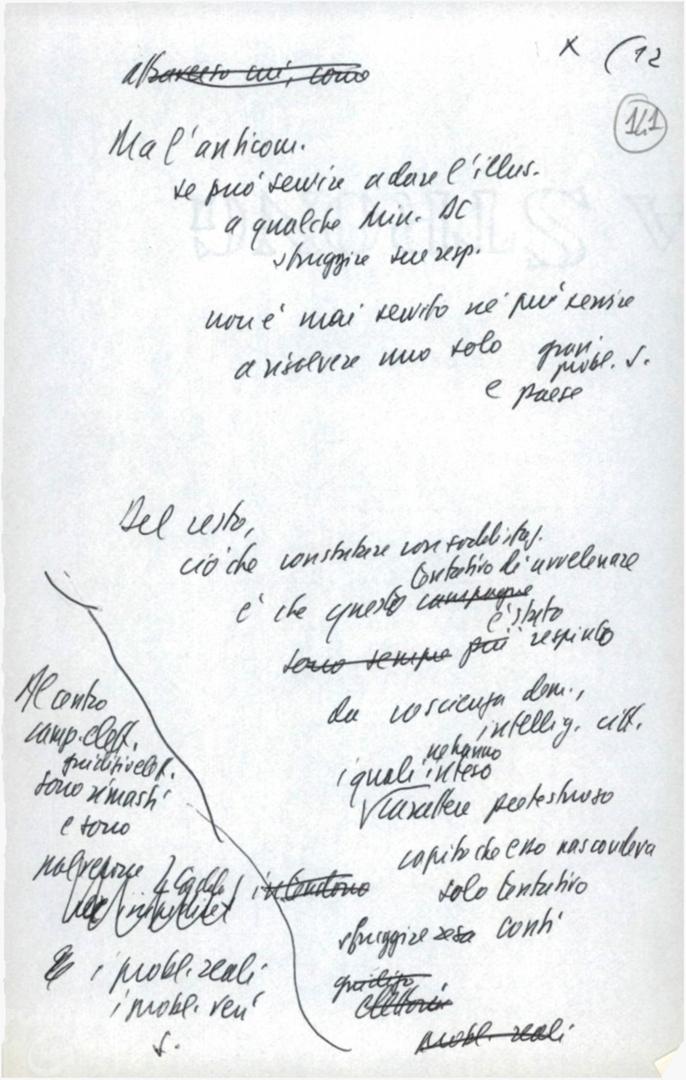 x (12
141
attraverso cui, como
Ma l'anticom.
se può servire a dare l'illus.
a qualche Min. DC
sfuggire sue resp.
non è mai servito né può servire
a risolvere uno solo gravi
probl. S.
e paese
Del resto,
ciò che constatare con soddisfaz.
tentativo di avvelenare
è che questo campagne
è stato
sono sempre più respinto
da coscienza dem.,
intellig. citt.
ne hanno
i quali inteso
carattere pretestuoso
capito che esso nascondeva
solo tentativo
sfuggire resa conti
giudizio
elettorii
probl. reali
Al centro
camp. elett.
giudizi elett.
sono rimasti
e sono
nella regione
i probl. reali
i probl. veri
S.